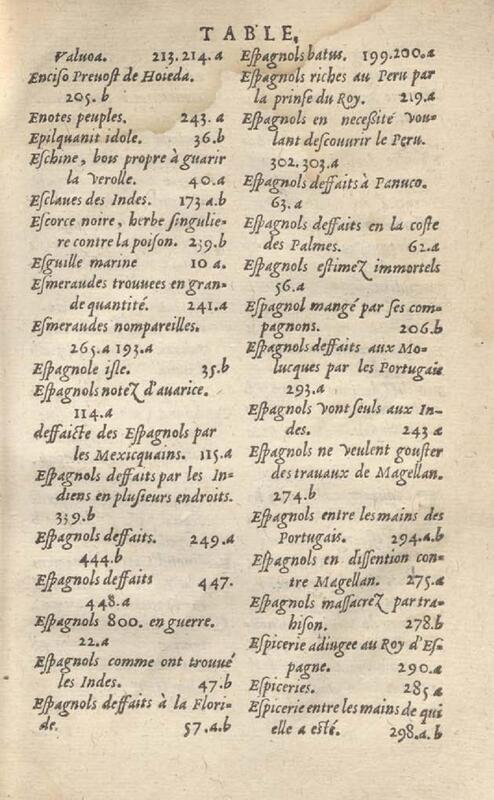 TABLE.
Valuoa. 213.214.a
Enciso Preuost de Hoieda.
205.b
Enotes peuples. 243.a
Epilquanit idole. 36.b
Eschine, bois propre à guarir
la verolle. 40.a
Esclaues des Indes. 173.a.b
Escorce noire, herbe singulie-
re contre la poison. 239.b
Esguille marine 10 a.
Esmeraudes trouuees en gran-
de quantité. 241.a
Esmeraudes nompareilles.
265.a 193.a
Espagnole isle. 35.b
Espagnols notez d'auarice.
114.a
deffaicte des Espagnols par
les Mexicquains. 115.a
Espagnols deffaits par les In-
diens en plusieurs endroits.
339.b
Espagnols deffaits. 249.a
444.b
Espagnols deffaits 447.
448.a
Espagnols 800. en guerre.
22.a
Espagnols comme ont trouué
les Indes. 47.b
Espagnols deffaits à la Flori-
de. 57.a.b
Espagnols batus. 199.200.a
Espagnols riches au Peru par
la prinse du Roy. 219.a
Espagnols en necessité vou-
lant descouurir le Peru.
302.303.a
Espagnols deffaits à Panuco.
63.a
Espagnols deffaits en la coste
des Palmes. 62.a
Espagnols estimez immortels
56.a
Espagnol mangé par ses com-
pagnons. 206.b
Espagnols deffaits aux Mo-
lucques par les Portugais
293.a
Espagnols vont seuls aux In-
des. 243 a
Espagnols ne veulent gouster
des trauaux de Magellan.
274.b
Espagnols entre les mains des
Portugais. 294.a.b
Espagnols en dissention con-
tre Magellan. 275.a
Espagnols massacrez par tra-
hison. 278.b
Espicerie adiugee au Roy d'Es-
pagne. 290.a
Espiceries. 285 a
Espicerie entre les mains de qui
elle a esté. 298.a.b